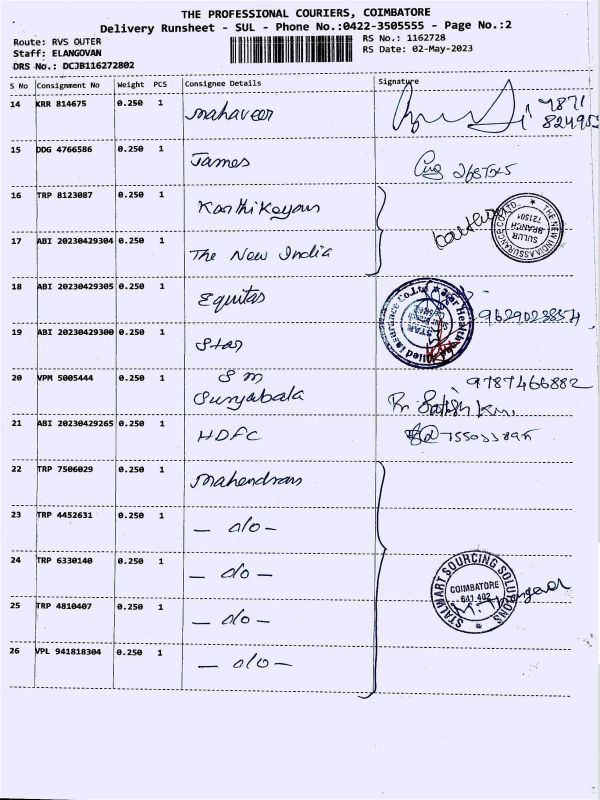 THE PROFESSIONAL COURIERS, COIMBATORE
Delivery Runsheet - SUL - Phone No.:0422-3505555 - Page No.:2
Route: RVS OUTER
RS No.: 1162728
Staff: ELANGOVAN
RS Date: 02-May-2023
DRS No.: DCJB116272802
S No Consignment No Weight PCS Consignee Details Signature
14 KRR 814675 0.250 1 Mahaveer
15 DDG 4766586 0.250 1 James
16 TRP 8123087 0.250 1 Karthikeyan
17 ABI 20230429304 0.250 1 The New India
THE NEW INDIA ASSURANCE CO. LTD.
SULUR
BRANCH
721501
18 ABI 20230429305 0.250 1 Equitas
19 ABI 20230429300 0.250 1 Star
9629023854
20 VPM 5005444 0.250 1 SM
Suryabala
9787466882
21 ABI 20230429265 0.250 1 HDFC
22 TRP 7506029 0.250 1 Mahendran
23 TRP 4452631 0.250 1 - do -
24 TRP 6330140 0.250 1 - do -
25 TRP 4810407 0.250 1 - do -
STALWART SOURCING SOLUTIONS
COIMBATORE
641 402
26 VPL 941818304 0.250 1 - do -